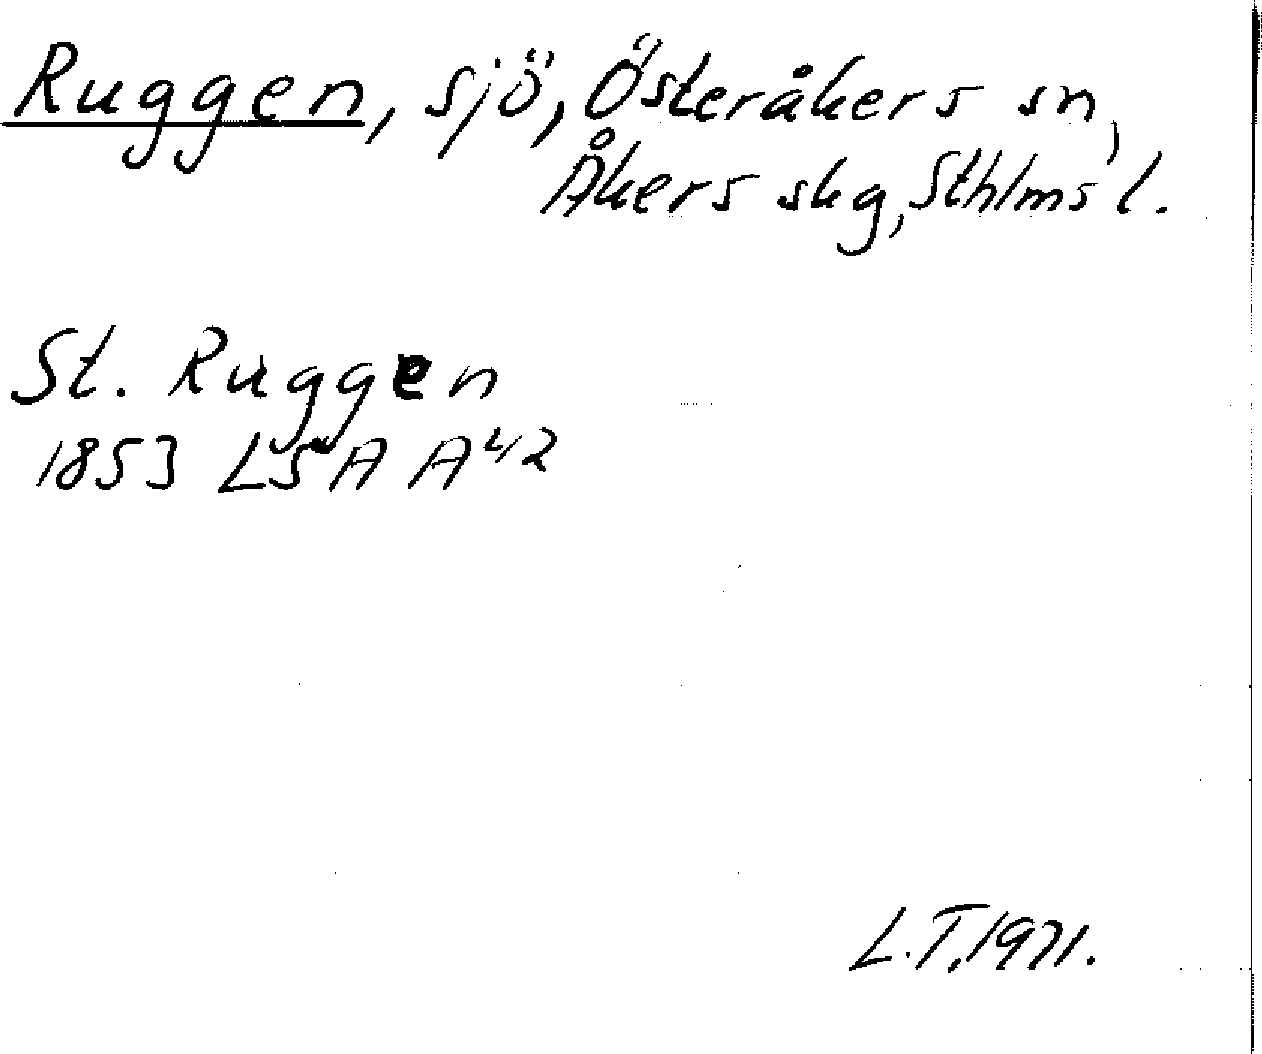 Ruggen, sjö, Österåkers sn,
Åkers skg, Sthlms l.
St. Ruggen
1853 LSA A42
L.T. 1971.